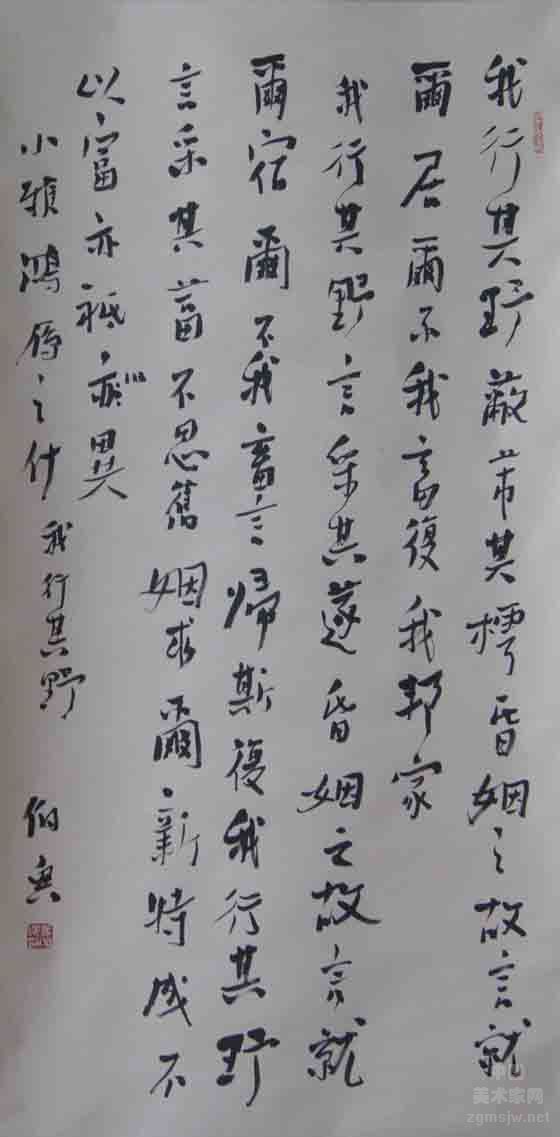 我行其野蔽芾其樗昏姻之故言就
爾居爾不我畜復我邦家
我行其野言采其蓫昏姻之故言就
爾宿爾不我畜言歸斯復我行其野
言采其葍不思舊姻求爾新特成不
以富亦祇以異
小雅鴻雁之什 我行其野 伯
中国
美术家网
zgmsjw.net